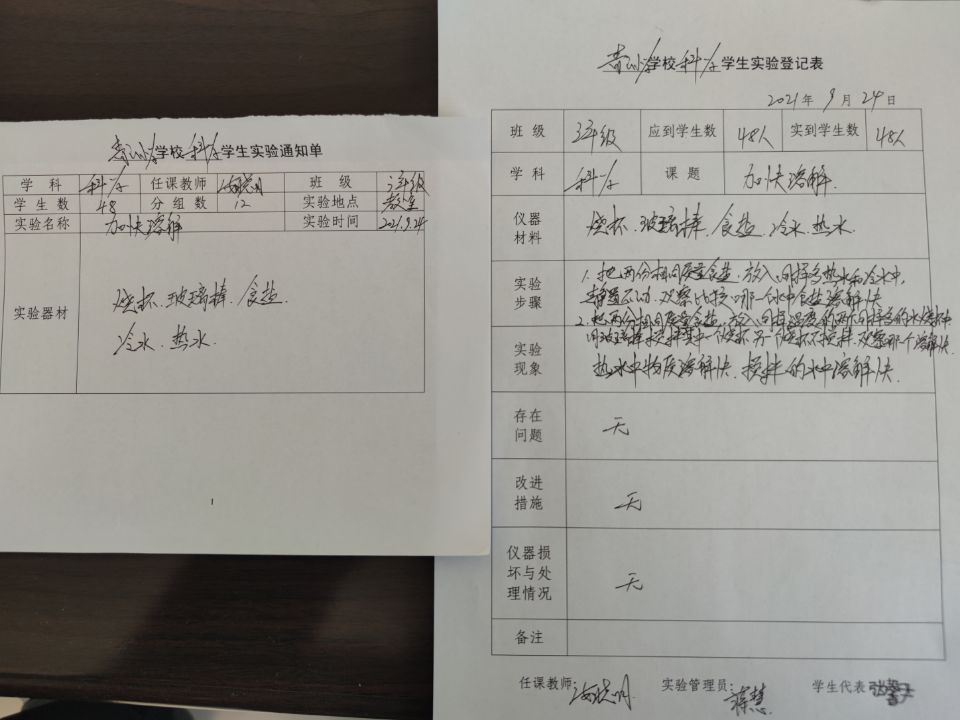 学校科学学生实验通知单
学科 科学 任课教师 班级 三年级
学生数 48 分组数 12 实验地点 教室
实验名称 加快溶解 实验时间 2021.9.24
实验器材 烧杯、玻璃棒、食盐、
冷水、热水.
1
学校科学学生实验登记表
2021年9月24日
班级 三年级 应到学生数 48人 实到学生数 48人
学科 科学 课题 加快溶解.
仪器材料 烧杯、玻璃棒、食盐、冷水、热水.
实验步骤 1. 把两份相同质量食盐,放入同样多热水和冷水中,
静置不动,观察比较哪一个水中食盐溶解快
2. 把两份相同质量食盐,放入同样温度的两个同样多的水烧杯中
用玻璃棒搅拌其中一个烧杯另一个烧杯不搅拌,观察哪个溶解快.
实验现象 热水中物质溶解快、搅拌的水中溶解快.
存在问题 无
改进措施 无
仪器损坏与处理情况 无
备注
任课教师: 实验管理员: 蒋慧 学生代表